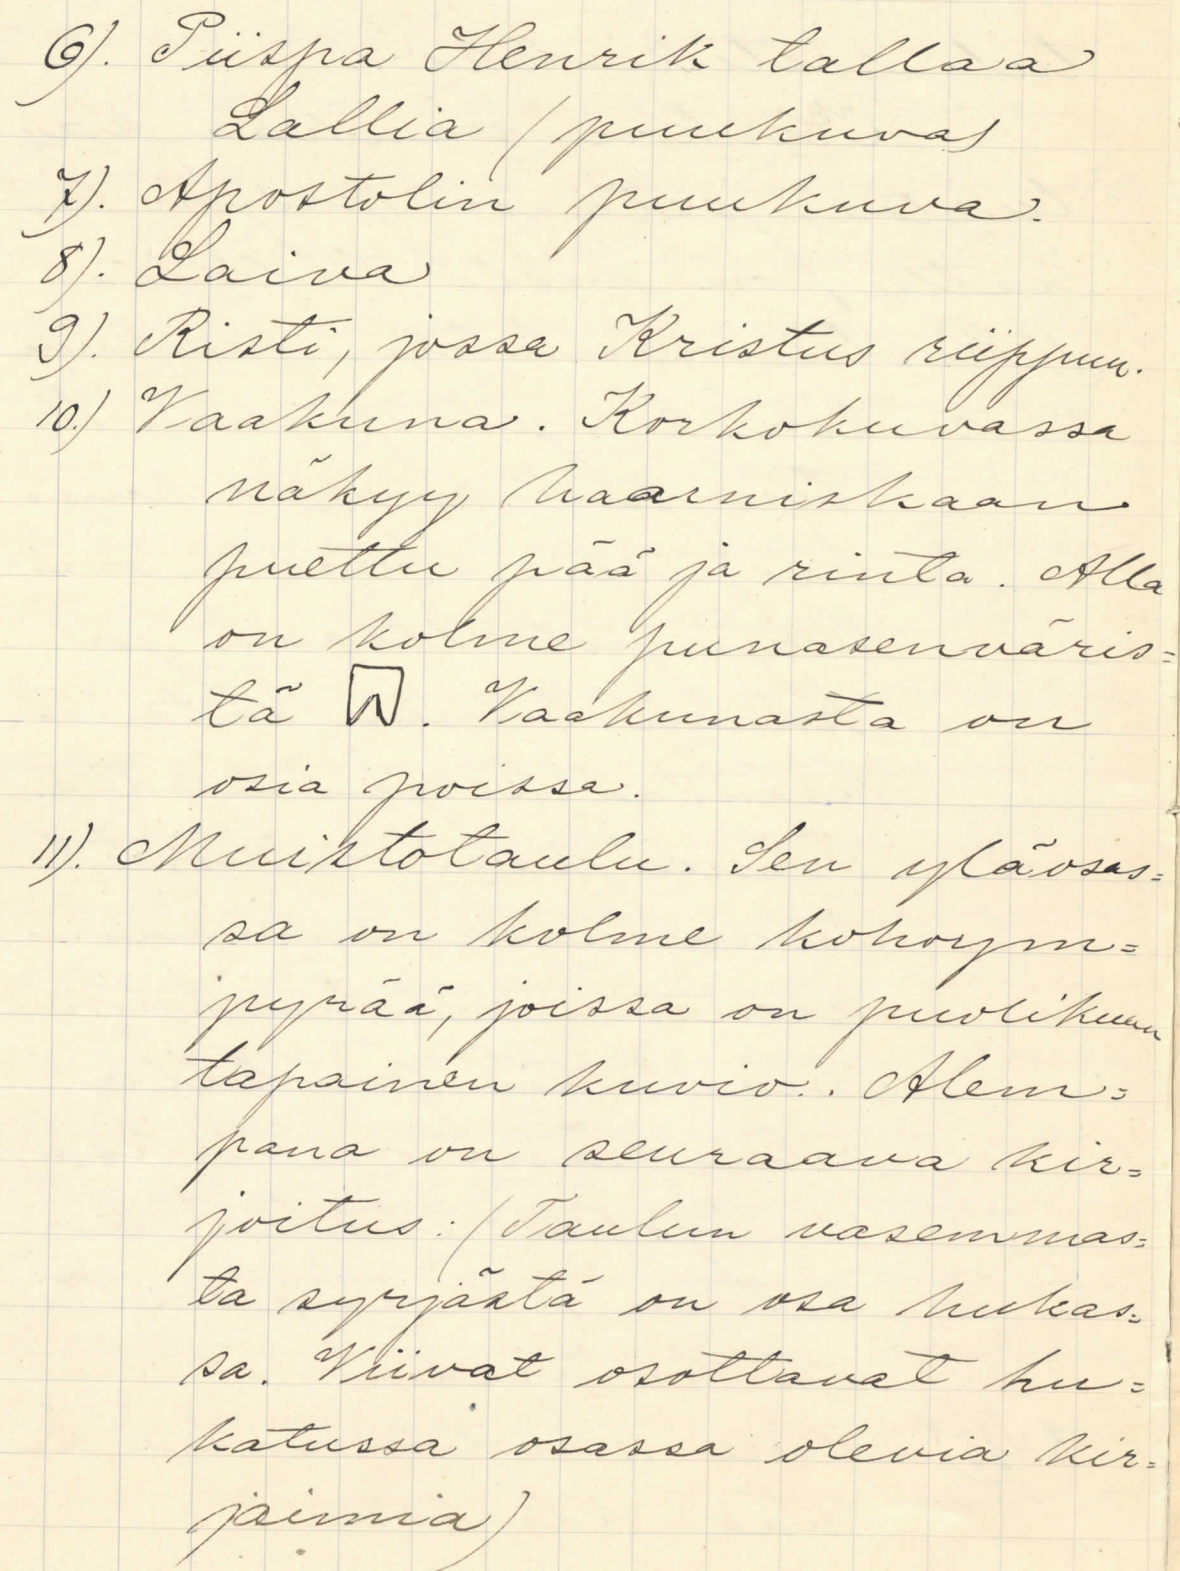 6). Piispa Henrik tallaa
Lallia (puukuva)
7). Apostolin puukuva.
8). Laiva
9). Risti, jossa Kristus riippuu.
10.) Vaakuna. Korkokuvassa
näkyy haarniskaan
puettu pää ja rinta. Alla
on kolme punasenväris=
tä . Vaakunasta on
osia poissa.
11). Muistotaulu. Sen yläosas=
sa on kolme kohoym=
pyrää, joissa on puolikuun
tapainen kuvio.. Alem=
pana on seuraava kir=
joitus: (Taulun vasemmas=
ta syrjästä on osa hukas=
sa. Viivat osottavat hu=
katussa osassa olevia kir=
jaimia)